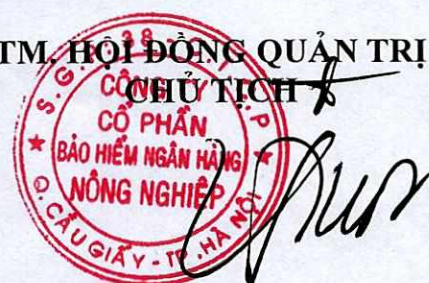 TM. HỘI ĐỒNG QUẢN TRỊ
CHỦ TỊCH
CÔNG TY
CỔ PHẦN
BẢO HIỂM NGÂN HÀNG
NÔNG NGHIỆP
Q.CẦU GIẤY - TP.HÀ NỘI